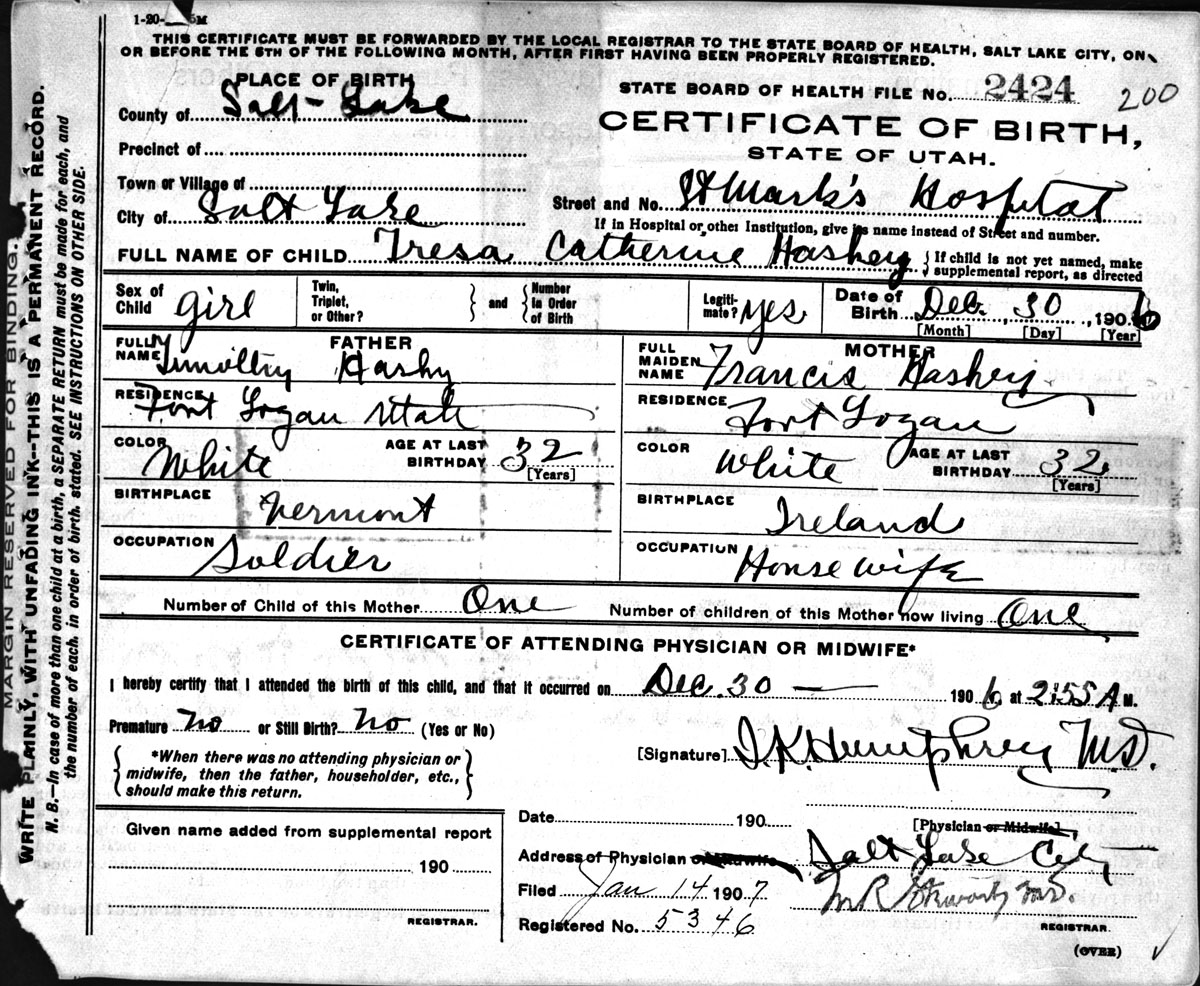 1-20-__5M
THIS CERTIFICATE MUST BE FORWARDED BY THE LOCAL REGISTRAR TO THE STATE BOARD OF HEALTH, SALT LAKE CITY, ON
OR BEFORE THE 5TH OF THE FOLLOWING MONTH, AFTER FIRST HAVING BEEN PROPERLY REGISTERED.
PLACE OF BIRTH
STATE BOARD OF HEALTH FILE No. 2424 200
County of Salt Lake
CERTIFICATE OF BIRTH,
STATE OF UTAH.
Precinct of
Town or Village of
City of Salt Lake
Street and No. St Mark's Hospital
If in Hospital or other Institution, give its name instead of Street and number.
FULL NAME OF CHILD Tresa Catherine Hashey { If child is not yet named, make
supplemental report, as directed
Sex of Child girl
Twin, Triplet, or Other? } and { Number In Order of Birth
Legiti-mate? yes
Date of Birth Dec. 30, 1906
[Month] [Day] [Year]
FATHER
FULL NAME Timothy Hashy
RESIDENCE Fort Logan Utah
COLOR White AGE AT LAST BIRTHDAY 32 [Years]
BIRTHPLACE Vermont
OCCUPATION Soldier
MOTHER
FULL MAIDEN NAME Francis Hashey
RESIDENCE Fort Logan
COLOR White AGE AT LAST BIRTHDAY 32 [Years]
BIRTHPLACE Ireland
OCCUPATION House wife
Number of Child of this Mother One Number of children of this Mother now living One
CERTIFICATE OF ATTENDING PHYSICIAN OR MIDWIFE*
I hereby certify that I attended the birth of this child, and that it occurred on Dec. 30 — 1906 at 2:55 A M.
Premature no or Still Birth? no (Yes or No)
{ *When there was no attending physician or
midwife, then the father, householder, etc.,
should make this return. }
[Signature] J. K. Humphrey M.D.
[Physician or Midwife]
Given name added from supplemental report
190
REGISTRAR.
Date 190
Address of Physician or Midwife Salt Lake City
Filed Jan 14 1907
Registered No. 5346
REGISTRAR.
(OVER)
MARGIN RESERVED FOR BINDING.
WRITE PLAINLY, WITH UNFADING INK—THIS IS A PERMANENT RECORD.
N. B.—In case of more than one child at a birth, a SEPARATE RETURN must be made for each, and
the number of each, in order of birth, stated. SEE INSTRUCTIONS ON OTHER SIDE.